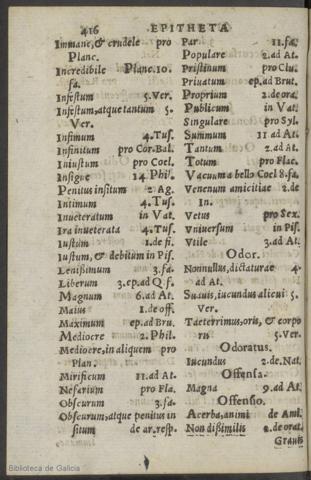 416 EPITHETA
Immane, & crudele pro
Planc.
Incredibile Planc. 10.
fa.
Infestum 5. Ver.
Infestum, atque tantum 5.
Ver.
Infimum 4. Tus.
Infinitum pro Cor. Bal.
Iniustum pro Coel.
Insigne 14 Phil.
Penitus insitum 2 Ag.
Intimum 4. Tus.
Inueteratum in Vat.
Ira inueterata 4. Tus.
Iustum 1. de fi.
Iustum, & debitum in Pis.
Lenissimum 3. fa.
Liberum 3. ep. ad Q. f.
Magnum 6. ad At.
Maius 1. de off.
Maximum ep. ad Bru.
Mediocre 2. Phil.
Mediocre, in aliquem pro
Plan.
Mirificum 11. ad At.
Nefarium pro Fla.
Obscurum 3. fa.
Obscurum, atque penitus in
situm de ar. resp.
Par 11. fa.
Populare 2. ad At.
Pristinum pro Clu.
Priuatum ep. ad Brut.
Proprium 2. de ora.
Publicum in Vat.
Singulare pro Syl.
Summum 11 ad At.
Tantum 2. ad At.
Totum pro Flac.
Vacuum a bello Coel 8. fa.
Venenum amicitiae 2. de
In.
Vetus pro Sex.
Vniuersum in Pis.
Vtile 3. ad At.
Odor.
Nonnullus, dictaturae 4.
ad At.
Suauis, iucundus alicui 5.
Ver.
Taeterrimus, oris, & corpo
ris 5. Ver.
Odoratus.
Iucundus 2. de Nat.
Offensa.
Magna 9. ad At.
Offensio.
Acerba, animi de Ami.
Non dissimilis 2. de orat.
Grauis
Biblioteca de Galicia